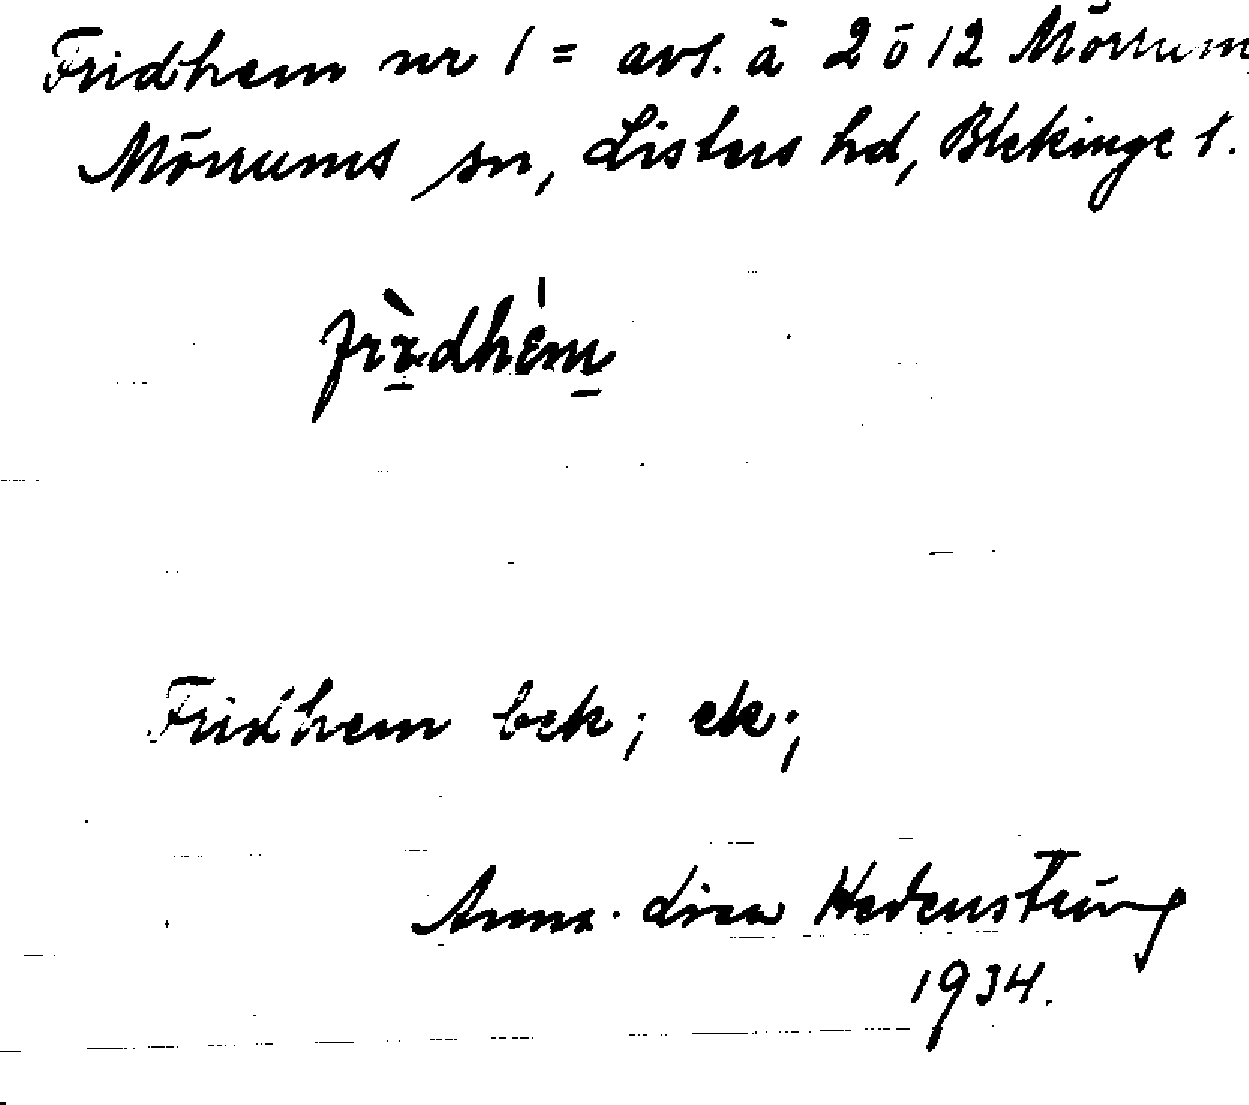 Fridhem nr 1 = avs. å 2 ö 12 Mörrum,
Mörrums sn, Listers hd, Blekinge l.
frìdhém
Fridhem bek; ek;
Anna-Lisa Hedenström
1934.